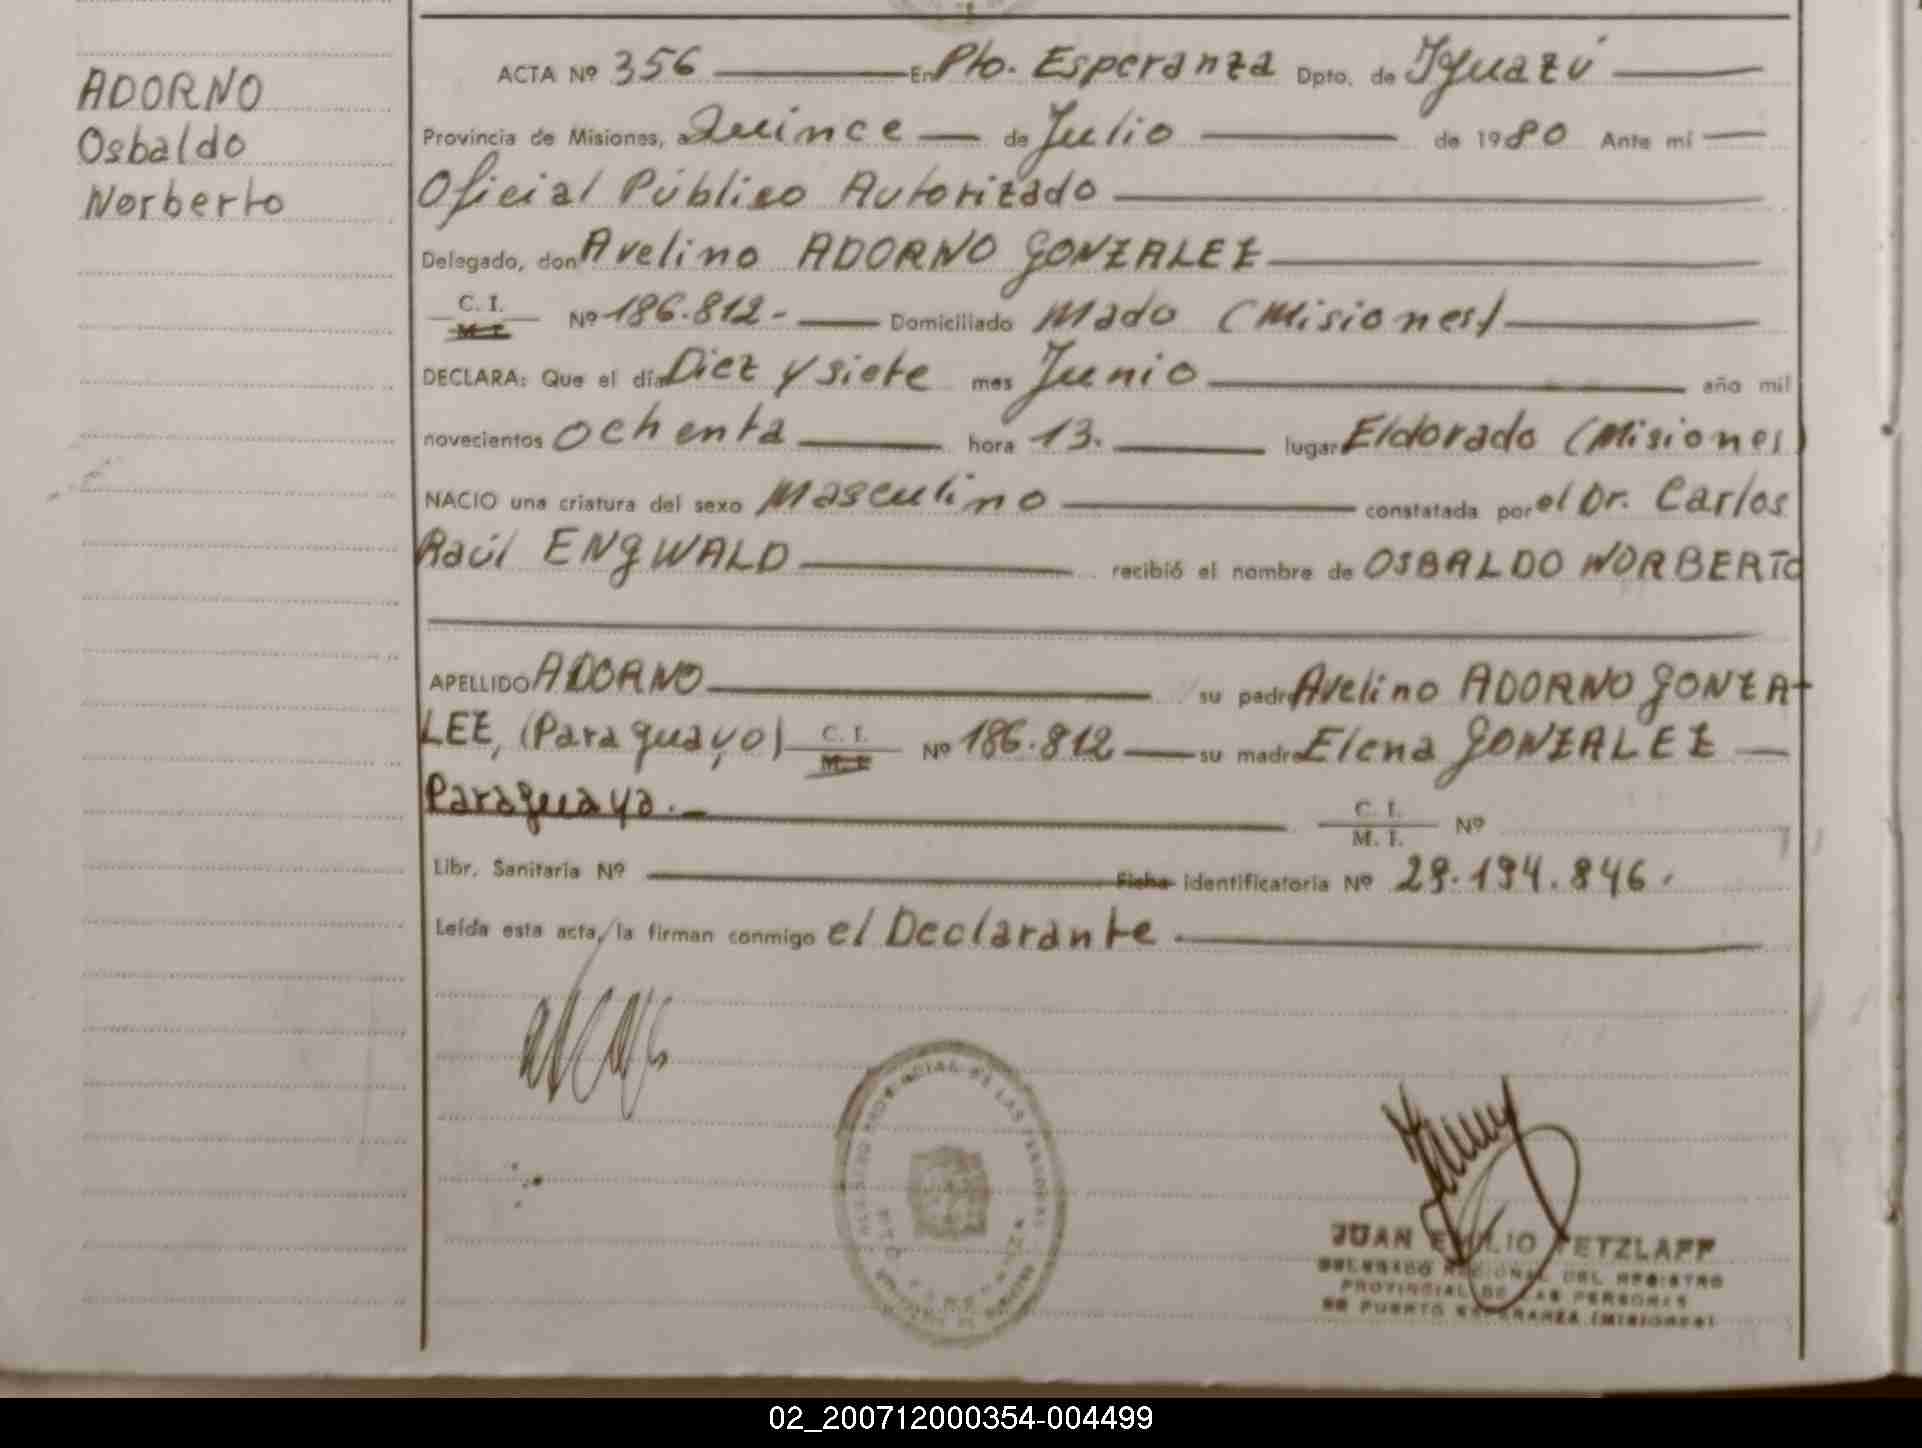 ADORNO
Osbaldo
Norberto
ACTA Nº 356 En Pto. Esperanza Dpto. de Iguazú
Provincia de Misiones, a Quince de Julio de 1980 Ante mí
Oficial Público Autorizado
Delegado, don Avelino ADORNO GONZALEZ
C. I.
M. I. Nº 186.812.- Domiciliado Mado (Misiones)
DECLARA: Que el día Diez y siete mes Junio año mil
novecientos ochenta hora 13. lugar Eldorado (Misiones)
NACIO una criatura del sexo Masculino constatada por el Dr. Carlos
Raúl ENGWALD recibió el nombre de OSBALDO NORBERTO
APELLIDO ADORNO su padre Avelino ADORNO GONZA-
LEZ, (Paraguayo) C. I. M. I. Nº 186.812 su madre Elena GONZALEZ
Paraguaya.- C. I. M. I. Nº
Libr. Sanitaria Nº Ficha identificatoria Nº 28.194.846.
Leída esta acta, la firman conmigo el Declarante
PROVINCIAL DE LAS PERSONAS
JUAN EMILIO TETZLAFF
DELEGADO REGIONAL DEL REGISTRO
PROVINCIAL DE LAS PERSONAS
DE PUERTO ESPERANZA (MISIONES)
02_200712000354-004499